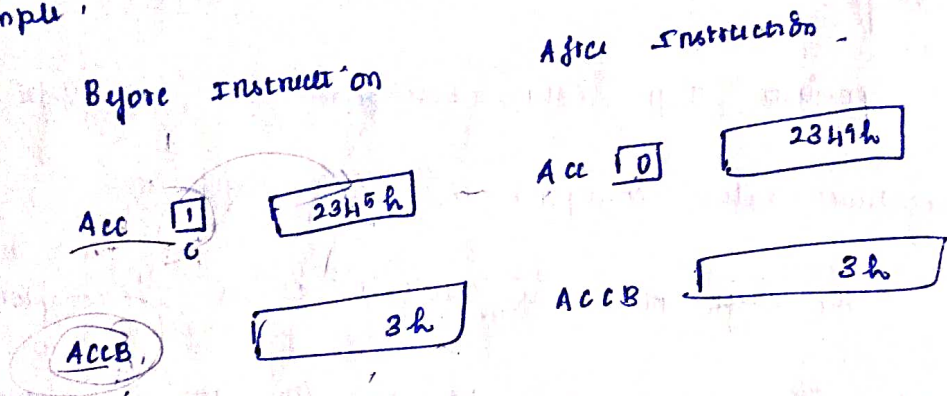 Before Instruction
After Instruction
Acc 1 2345h
C
Acc 0 2349h
ACCB, 3h
ACCB 3h